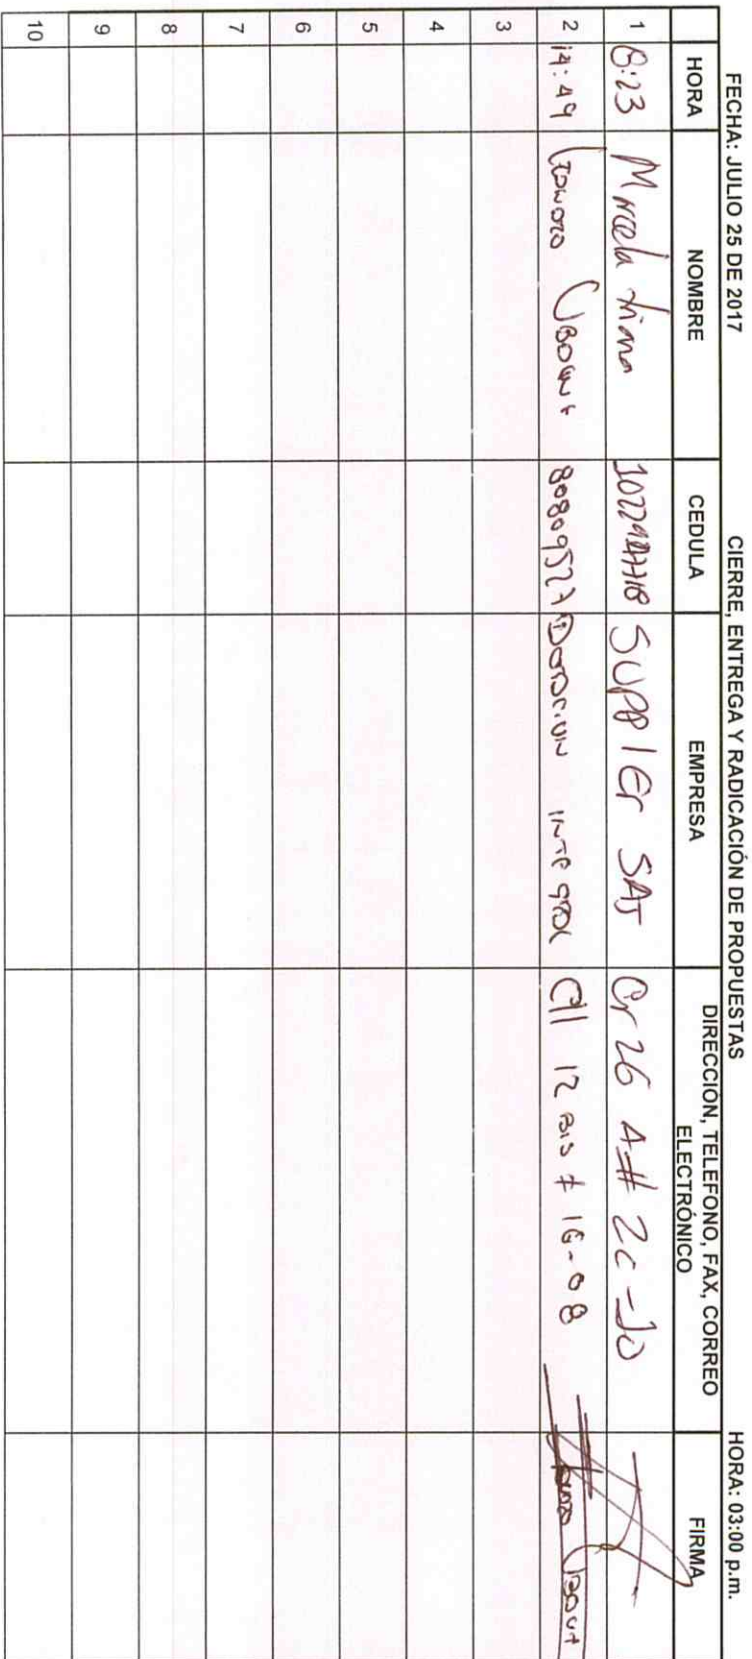 FECHA: JULIO 25 DE 2017 CIERRE, ENTREGA Y RADICACIÓN DE PROPUESTAS HORA: 03:00 p.m.
HORA NOMBRE CEDULA EMPRESA DIRECCIÓN, TELEFONO, FAX, CORREO ELECTRÓNICO FIRMA
1 8:23 Mrcela SUPPlEr SAS Cr 26 A # 2c - 10
2 14:49 80809527 DOTACION INTEGRAL Cll 12 BIS # 16-08
3
4
5
6
7
8
9
10